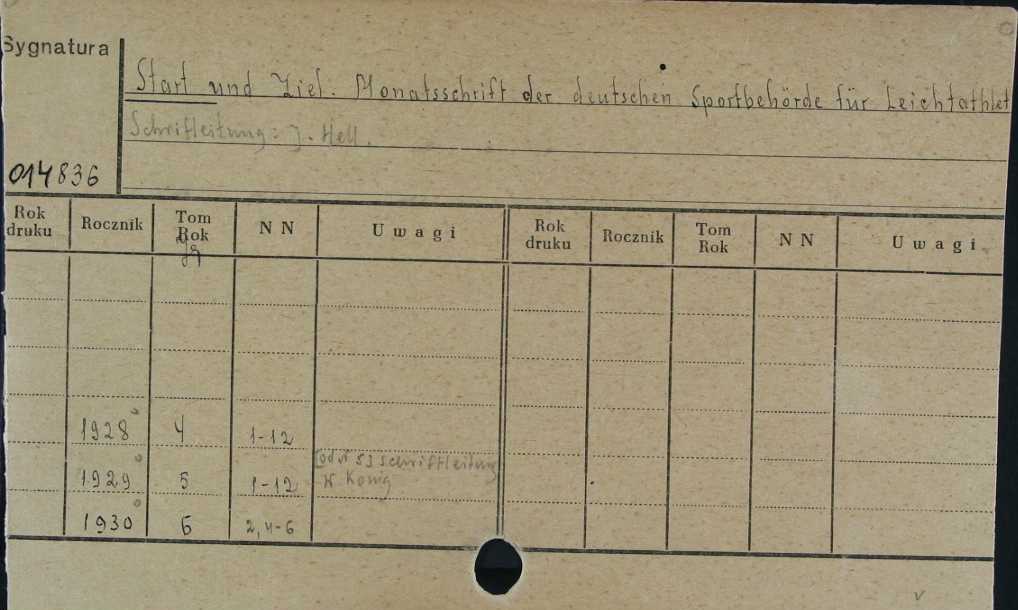 Sygnatura
Start und Ziel. Monatsschrift der deutschen Sportbehörde für Leichtathlet
Schriftleitung: J. Hell.
014836
Rok druku Rocznik Tom Rok NN Uwagi Rok druku Rocznik Tom Rok NN Uwagi
Jg
1928 4 1-12
[od № 5] Schriftleitung
1929 5 1-12 W. König
1930 6 2,4-6